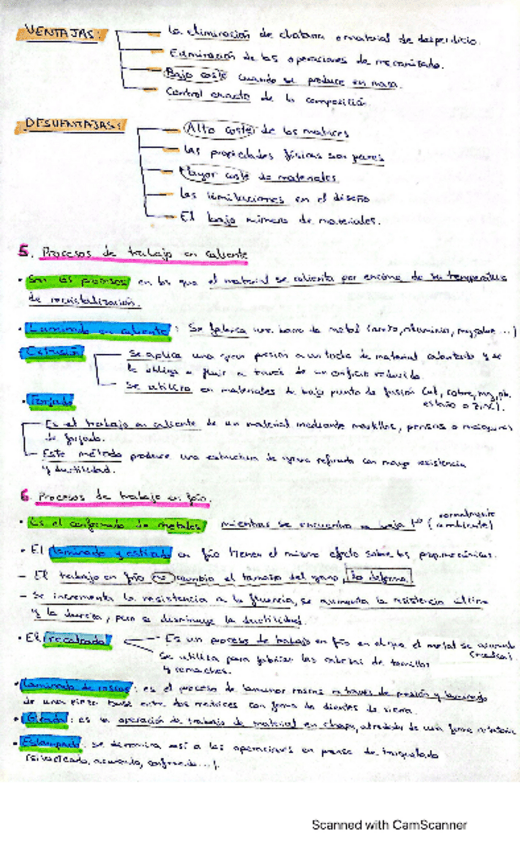 VENTAJAS:
La eliminación de chatarra o material de desperdicio.
Eliminación de las operaciones de mecanizado.
Bajo coste cuando se produce en masa.
Control exacto de la composición.
DESVENTAJAS:
Alto coste de las matrices
Las propiedades físicas son pares
Mayor coste de materiales
Las limitaciones en el diseño
El bajo número de materiales.
5. Procesos de trabajo en caliente
• Son los procesos en los que el material se calienta por encima de su temperatura
de recristalización.
• Laminado en caliente: Se fabrica una barra de metal (acero, aluminio, mg, cobre...)
• Extrusión
Se aplica una gran presión a un tocho de material calentado y se
le obliga a fluir a través de un orificio reducido.
Se utiliza en materiales de bajo punto de fusión (al, cobre, mg, pb,
estaño o zinc).
• Forjado
Es el trabajo en caliente de un material mediante martillos, prensas o máquinas
de forjado.
Este método produce una estructura de grano refinado con mayor resistencia
y ductilidad.
6. Procesos de trabajo en frío.
• Es el conformado de metales mientras se encuentra a baja tº (normalmente
ambiente)
• El laminado y estirado en frío tienen el mismo efecto sobre las prop. mecánicas.
- El trabajo en frío no cambia el tamaño del grano, lo deforma.
- Se incrementa la resistencia a la fluencia, se aumenta la resistencia última
y la dureza, pero se disminuye la ductilidad.
• El recalcado
Es un proceso de trabajo en frío en el que el metal se acumula
Se utiliza para fabricar las cabezas de tornillos
y remaches.
• Laminado de roscas: es el proceso de laminar roscas a través de presión y
de una pieza base entre dos matrices con forma de dientes de sierra.
• : es un operación de trabajo de material en chapa, alrededor de una forma rotatoria
• Estampado: se denomina así a las operaciones en prensa de troquelado
(sizallado, acunado, conformado...).
Scanned with CamScanner